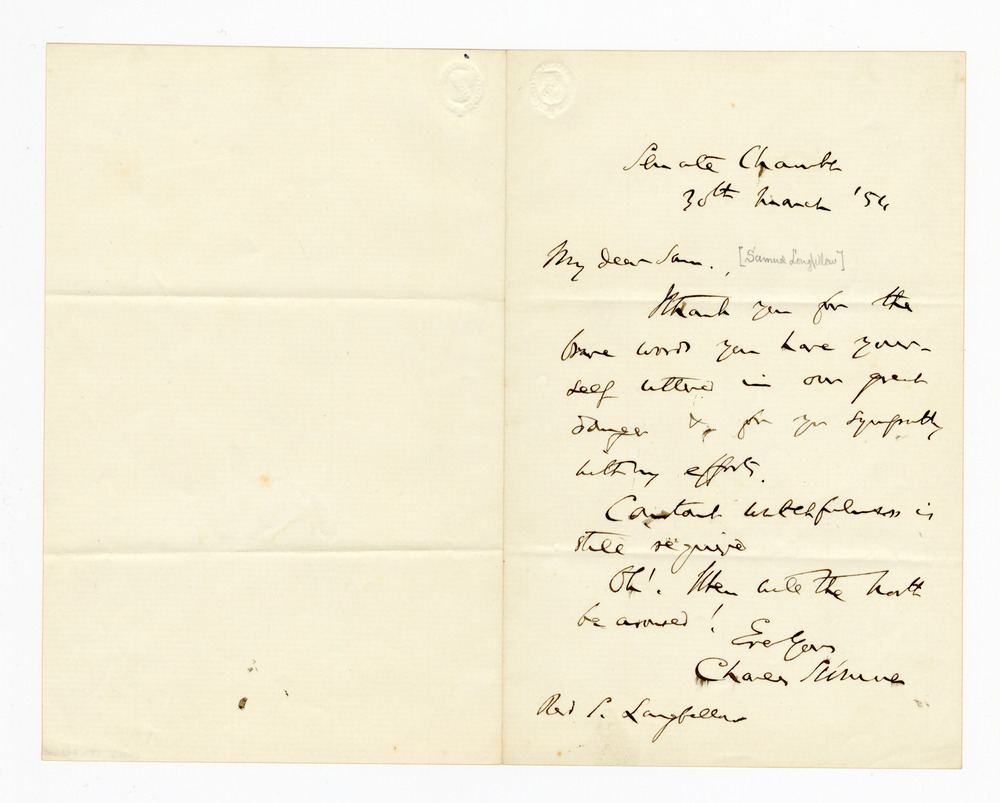 Senate Chamber
30th March '54
My dear Sam. [Samuel Longfellow]
Thank you for the
brave words you have your-
self uttered in our great
danger & for yr sympathy
with my efforts.
Constant watchfulness is
still required
Oh! When will the North
be aroused!
Ever Yours
Charles Sumner
Revd S. Longfellow